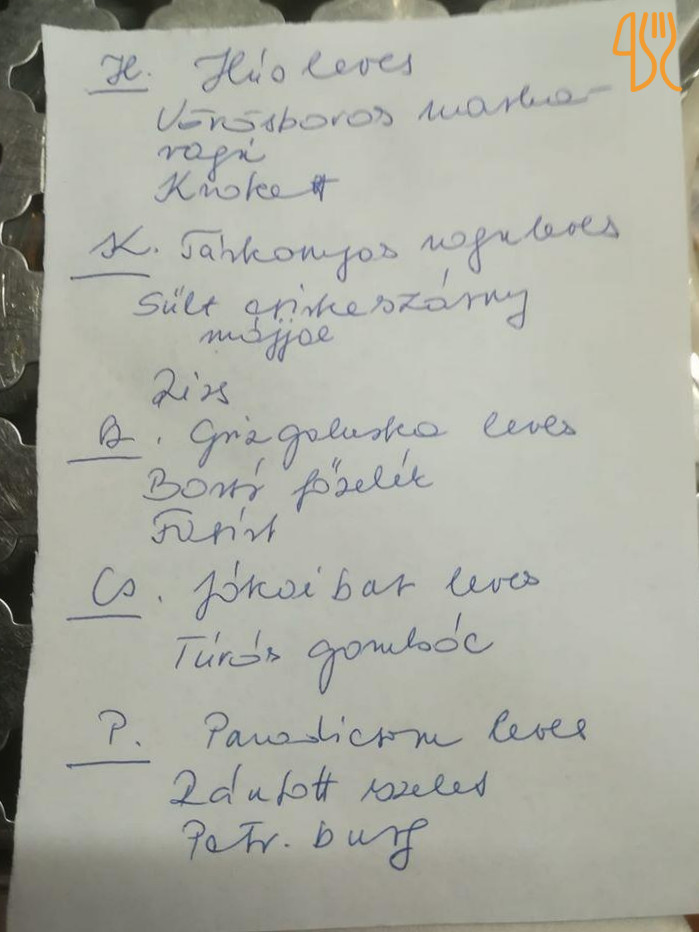 H. Húsleves
Vörösboros marha-
ragu
Krokett
K. Tárkonyos raguleves
Sült csirkeszárny
májjal
Rizs
B. Grízgaluska leves
Borsó főzelék
Fasírt
Cs. Jókai bab leves
Túrós gombóc
P. Paradicsom leves
Rántott szelet
Petr. burg